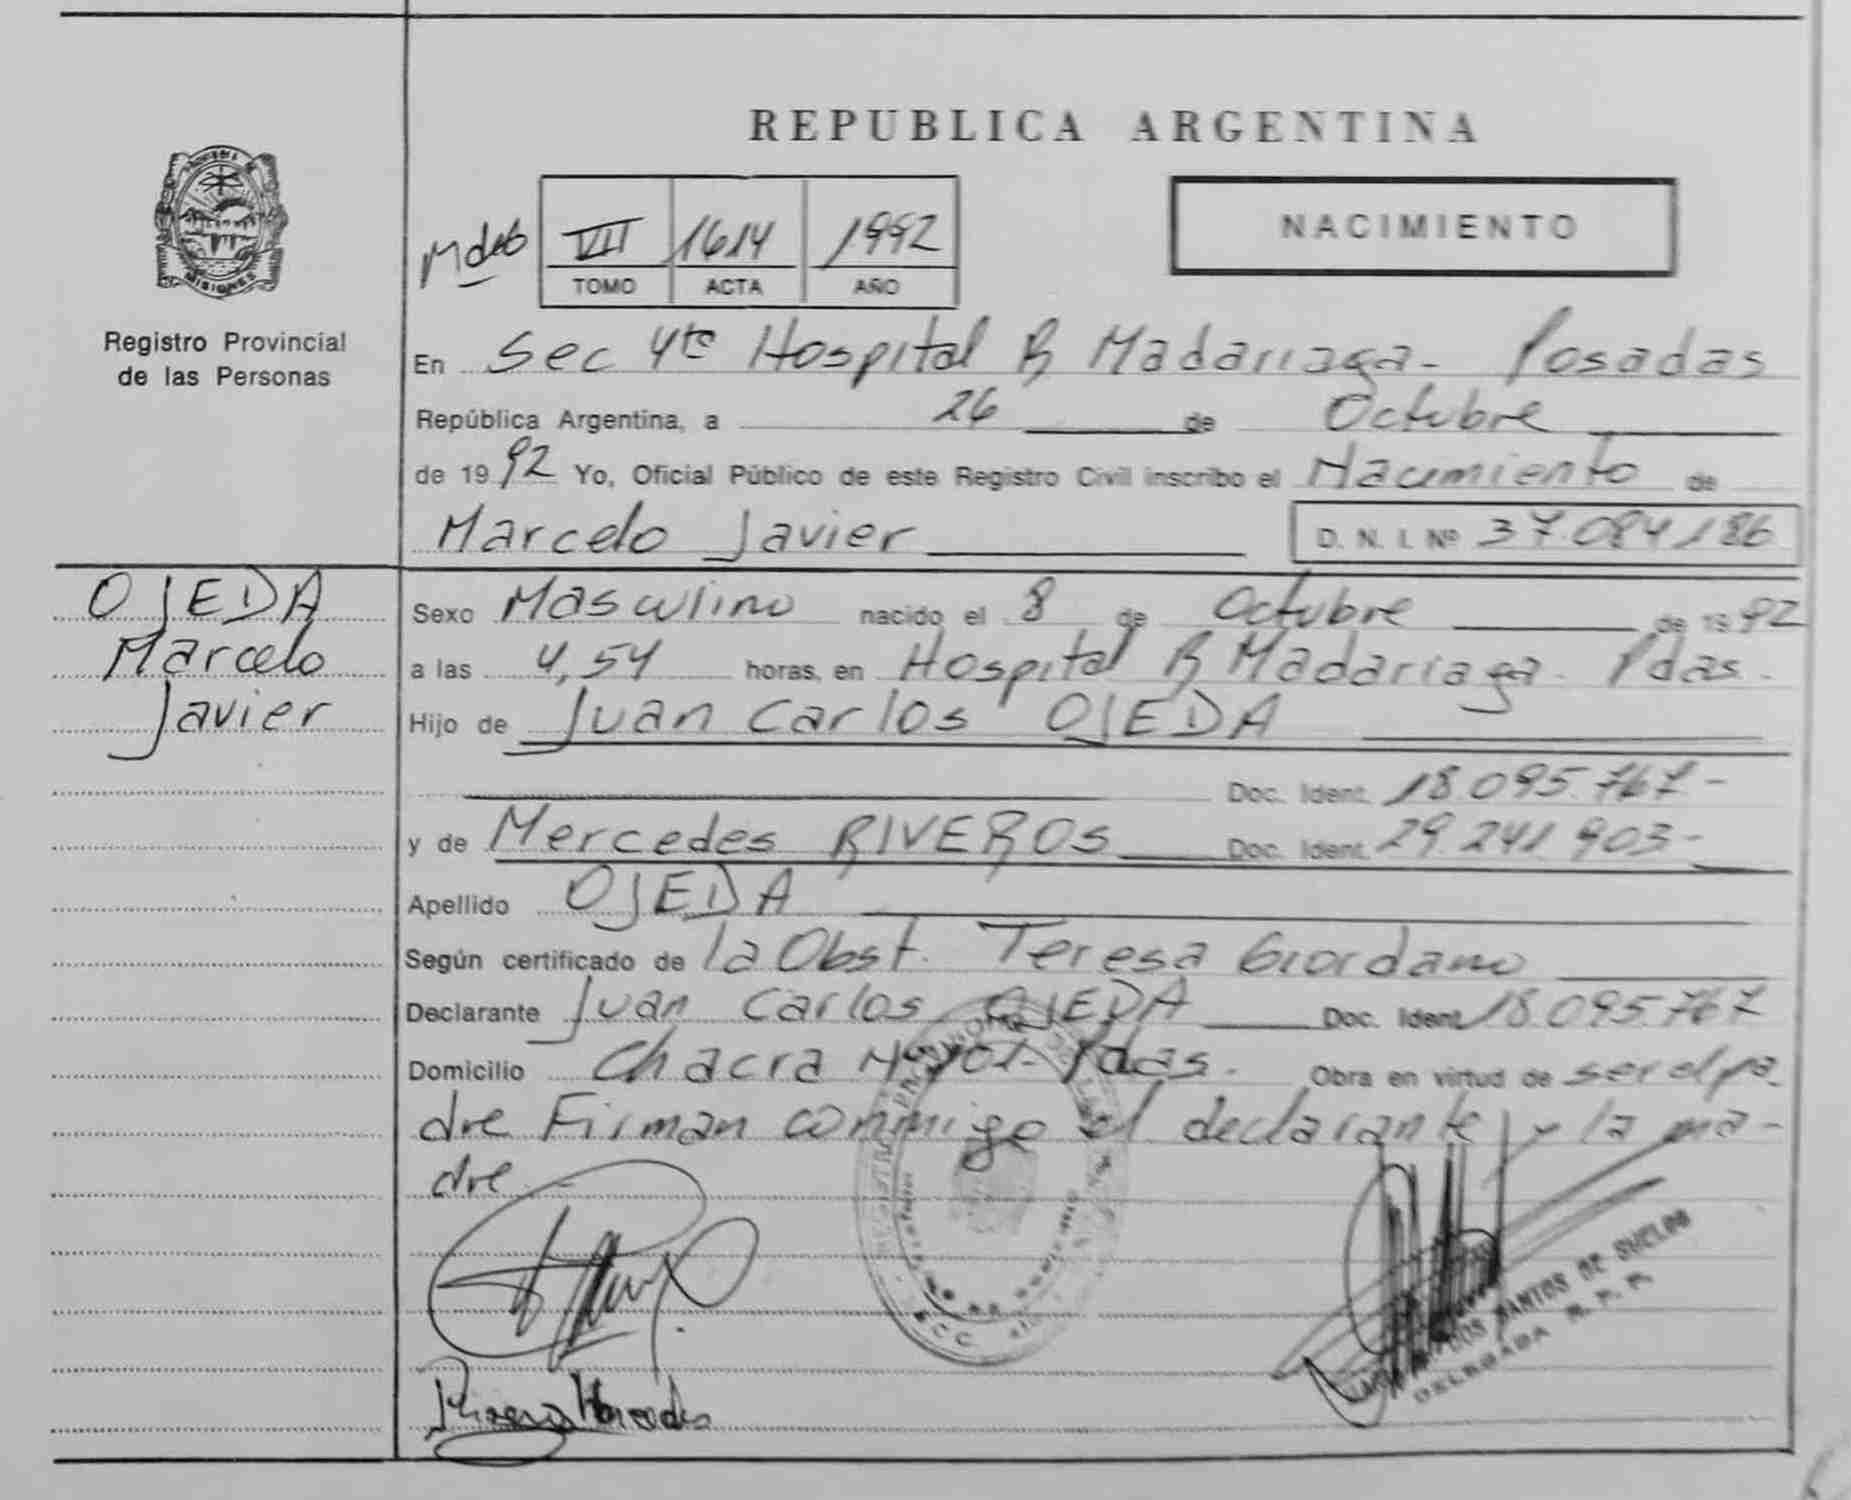 REPUBLICA ARGENTINA
MISIONES
Registro Provincial
de las Personas
VII 1614 1992
TOMO ACTA AÑO
NACIMIENTO
En Sec 4ta Hospital R Madariaga - Posadas
República Argentina, a 26 de Octubre
de 1992 Yo, Oficial Público de este Registro Civil inscribo el Nacimiento de
Marcelo Javier D. N. I. Nº 37.084186
OJEDA
Marcelo
Javier
Sexo Masculino nacido el 8 de Octubre de 1992
a las 4,54 horas, en Hospital R Madariaga - Pdas.
Hijo de Juan Carlos OJEDA
Doc. Ident. 18.095.767-
y de Mercedes RIVEROS Doc. Ident. 29.241.903-
Apellido OJEDA
Según certificado de la Obst. Teresa Giordano
Declarante Juan Carlos OJEDA Doc. Ident 18.095.767
Domicilio Chacra Pdas. Obra en virtud de ser el pa-
dre Firman conmigo el declarante y la ma-
dre
SANTOS DE SUELOS
DELEGADA R. P. P.